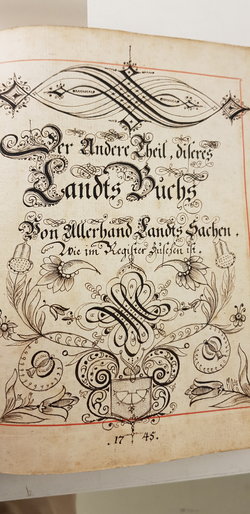 Der Andere Theil, dises
Landts Buchs
Von Allerhand Landts Sachen.
Wie im Register Zusehen ist.
.1745.